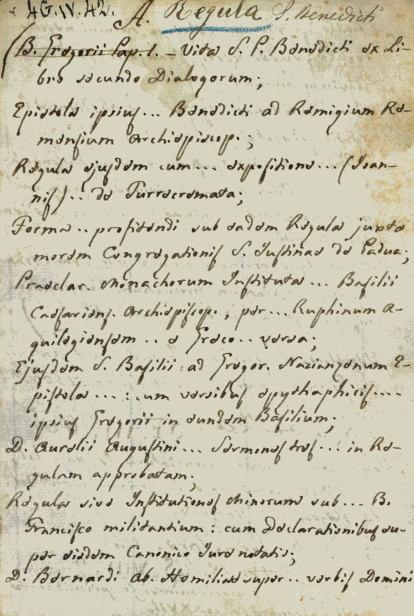 4G.IV.42. A. Regula S. Benedicti
(B. Gregorii Pap. I. - Vita S. P. Benedicti ex Li-
bro secundo Dialogorum;
Epistola ipsius... Benedicti ad Remigium Re-
mensium Archiepiscop.;
Regula ejusdem cum... expositione... (Joan-
nis).. de Turrecremata;
Forma.. profitendi sub eadem Regula juxta
morem Congregationis S. Justinae de Padua;
Praeclar. Monachorum Instituta... Basilii
Caesariens. Archiepiscop., per... Ruphinum A-
quilegiensem.. e Greco.. versa;
Ejusdem S. Basilii ad Gregor. Nazianzenum E-
pistola...: cum versibus epythaphicis....
ipsius Gregorii in eundem Basilium;
D. Aurelii Augustini... Sermones tres... in Re-
gulam approbatam;
Regula sive Institutiones Minorum sub... B.
Francisco militantium: cum declarationibus su-
per eisdem Canonico Jure notatis;
D. Bernardi Ab. Homiliae super.. verbis Domini